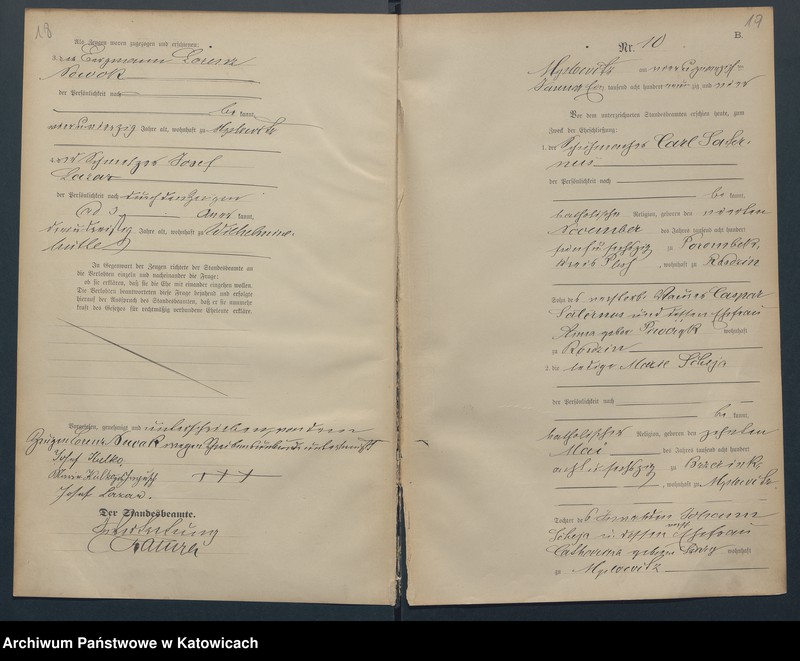 18
Als Zeugen waren zugezogen und erschienen:
3. der Bergmann Lorenz
Nowok
der Persönlichkeit nach
be kannt,
vierundvierzig Jahre alt, wohnhaft zu Myslowitz
4. der Schmelzer Josef
Lazar
der Persönlichkeit nach durch den Zeugen
ad 3 aner kannt,
Jahre alt, wohnhaft zu Wilhelmine-
hütte
In Gegenwart der Zeugen richtete der Standesbeamte an
die Verlobten einzeln und nacheinander die Frage:
ob sie erklären, daß sie die Ehe mit einander eingehen wollen.
Die Verlobten beantworteten diese Frage bejahend und erfolgte
hierauf der Ausspruch des Standesbeamten, daß er sie nunmehr
kraft des Gesetzes für rechtmäßig verbundene Eheleute erkläre.
Vorgelesen, genehmigt und unterschrieben, von dem
Zeugen Lorenz Nowok wegen Schreibensunkunde unterkreuzt
Josef Kulka
Kulka
+++
Josef Lazar.
Der Standesbeamte.
In Vertretung
19
B.
Nr. 10
Myslowitz am vierundzwanzigsten
Januar Ein tausend acht hundert neunzig und vier
Vor dem unterzeichneten Standesbeamten erschienen heute, zum
Zweck der Eheschließung:
1. der Schuhmacher Carl Sader-
nus
der Persönlichkeit nach
be kannt,
katholischer Religion, geboren den vierten
November des Jahres tausend acht hundert
fünfundsechszig zu Porombek,
Kreis Pleß, wohnhaft zu Rosdzin
Sohn des verstorb. Caspar
und dessen Ehefrau
Anna geb. wohnhaft
zu Rosdzin
2. die ledige Marie Scheja
der Persönlichkeit nach
be kannt,
katholischer Religion, geboren den zehnten
Mai des Jahres tausend acht hundert
achtundsechszig zu Brzezinka
, wohnhaft zu Myslowitz
Tochter des Johann
Scheja u. dessen Ehefrau
Catharina geborene wohnhaft
zu Myslowitz
Archiwum Państwowe w Katowicach